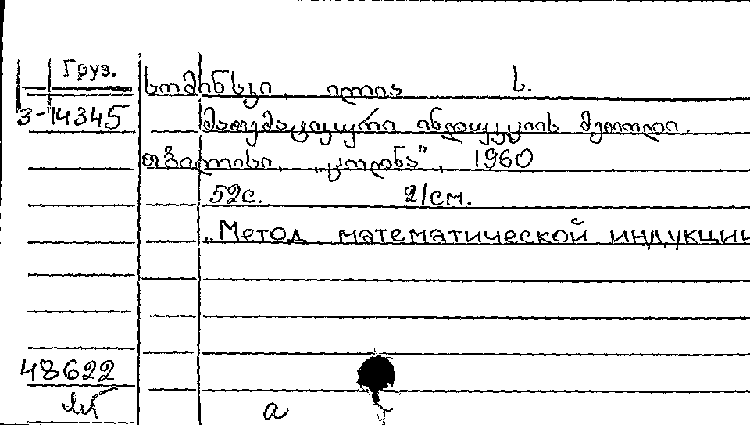 Груз.
სომინსკი, ილია ს.
3-14345
მათემატიკური ინდუქციის მეთოდი.
თბილისი, „ცოდნა”, 1960
52с. 21см.
„Метод математической индукции
48622
а